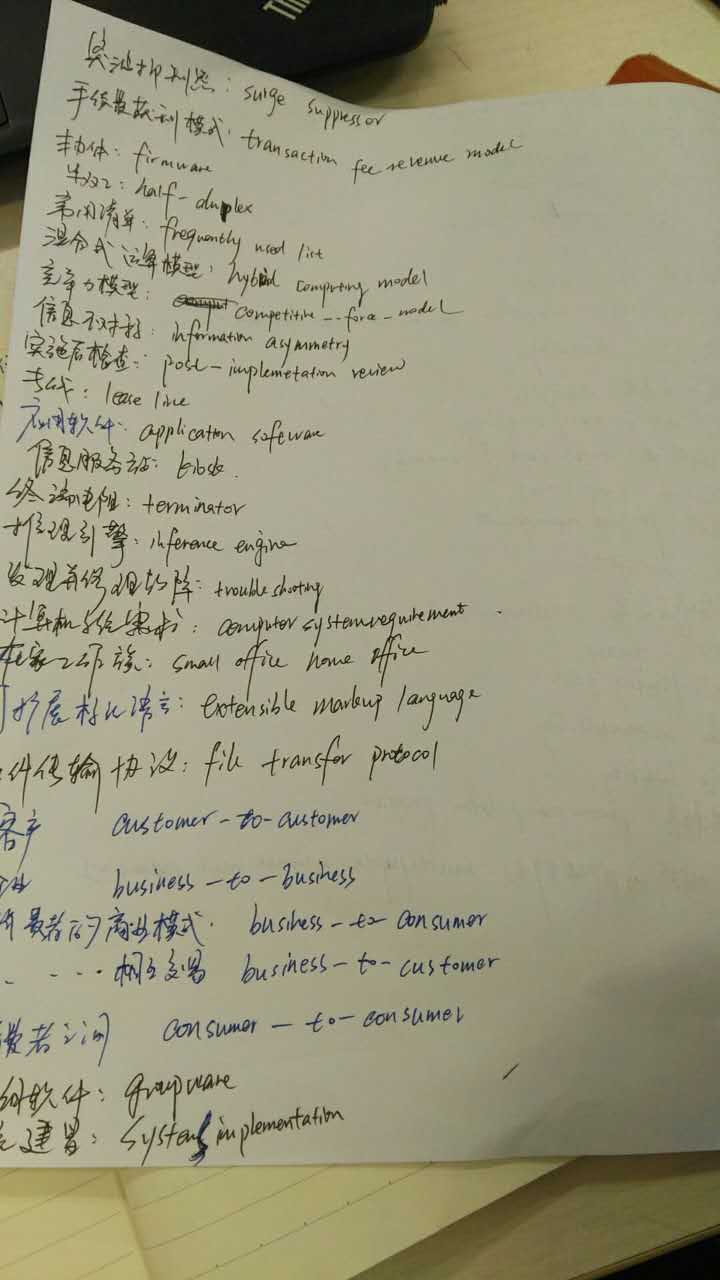 突波抑制器：surge suppressor
手续费获利模式：transaction fee revenue model
韧体：firmware
半双工：half-duplex
常用清单：frequently used list
混合式运算模型：hybrid computing model
竞争力模型：competitive--force-model
信息不对称：information asymmetry
实施后检查：post-implemetation review
专线：lease line
应用软件：application software
信息服务站：kiosk
终端电阻：terminator
推理引擎：inference engine
发现并修理故障：trouble shooting
计算机系统需求：computer system requirement
在家工作族：small office home office
扩展标记语言：extensible markup language
件传输协议：file transfer protocol
客户 customer-to-customer
business-to-business
费者的商业模式：business-to-consumer
.....相互交易 business-to-customer
费者之间 consumer-to-consumer
软件：groupware
建置：systems implementation